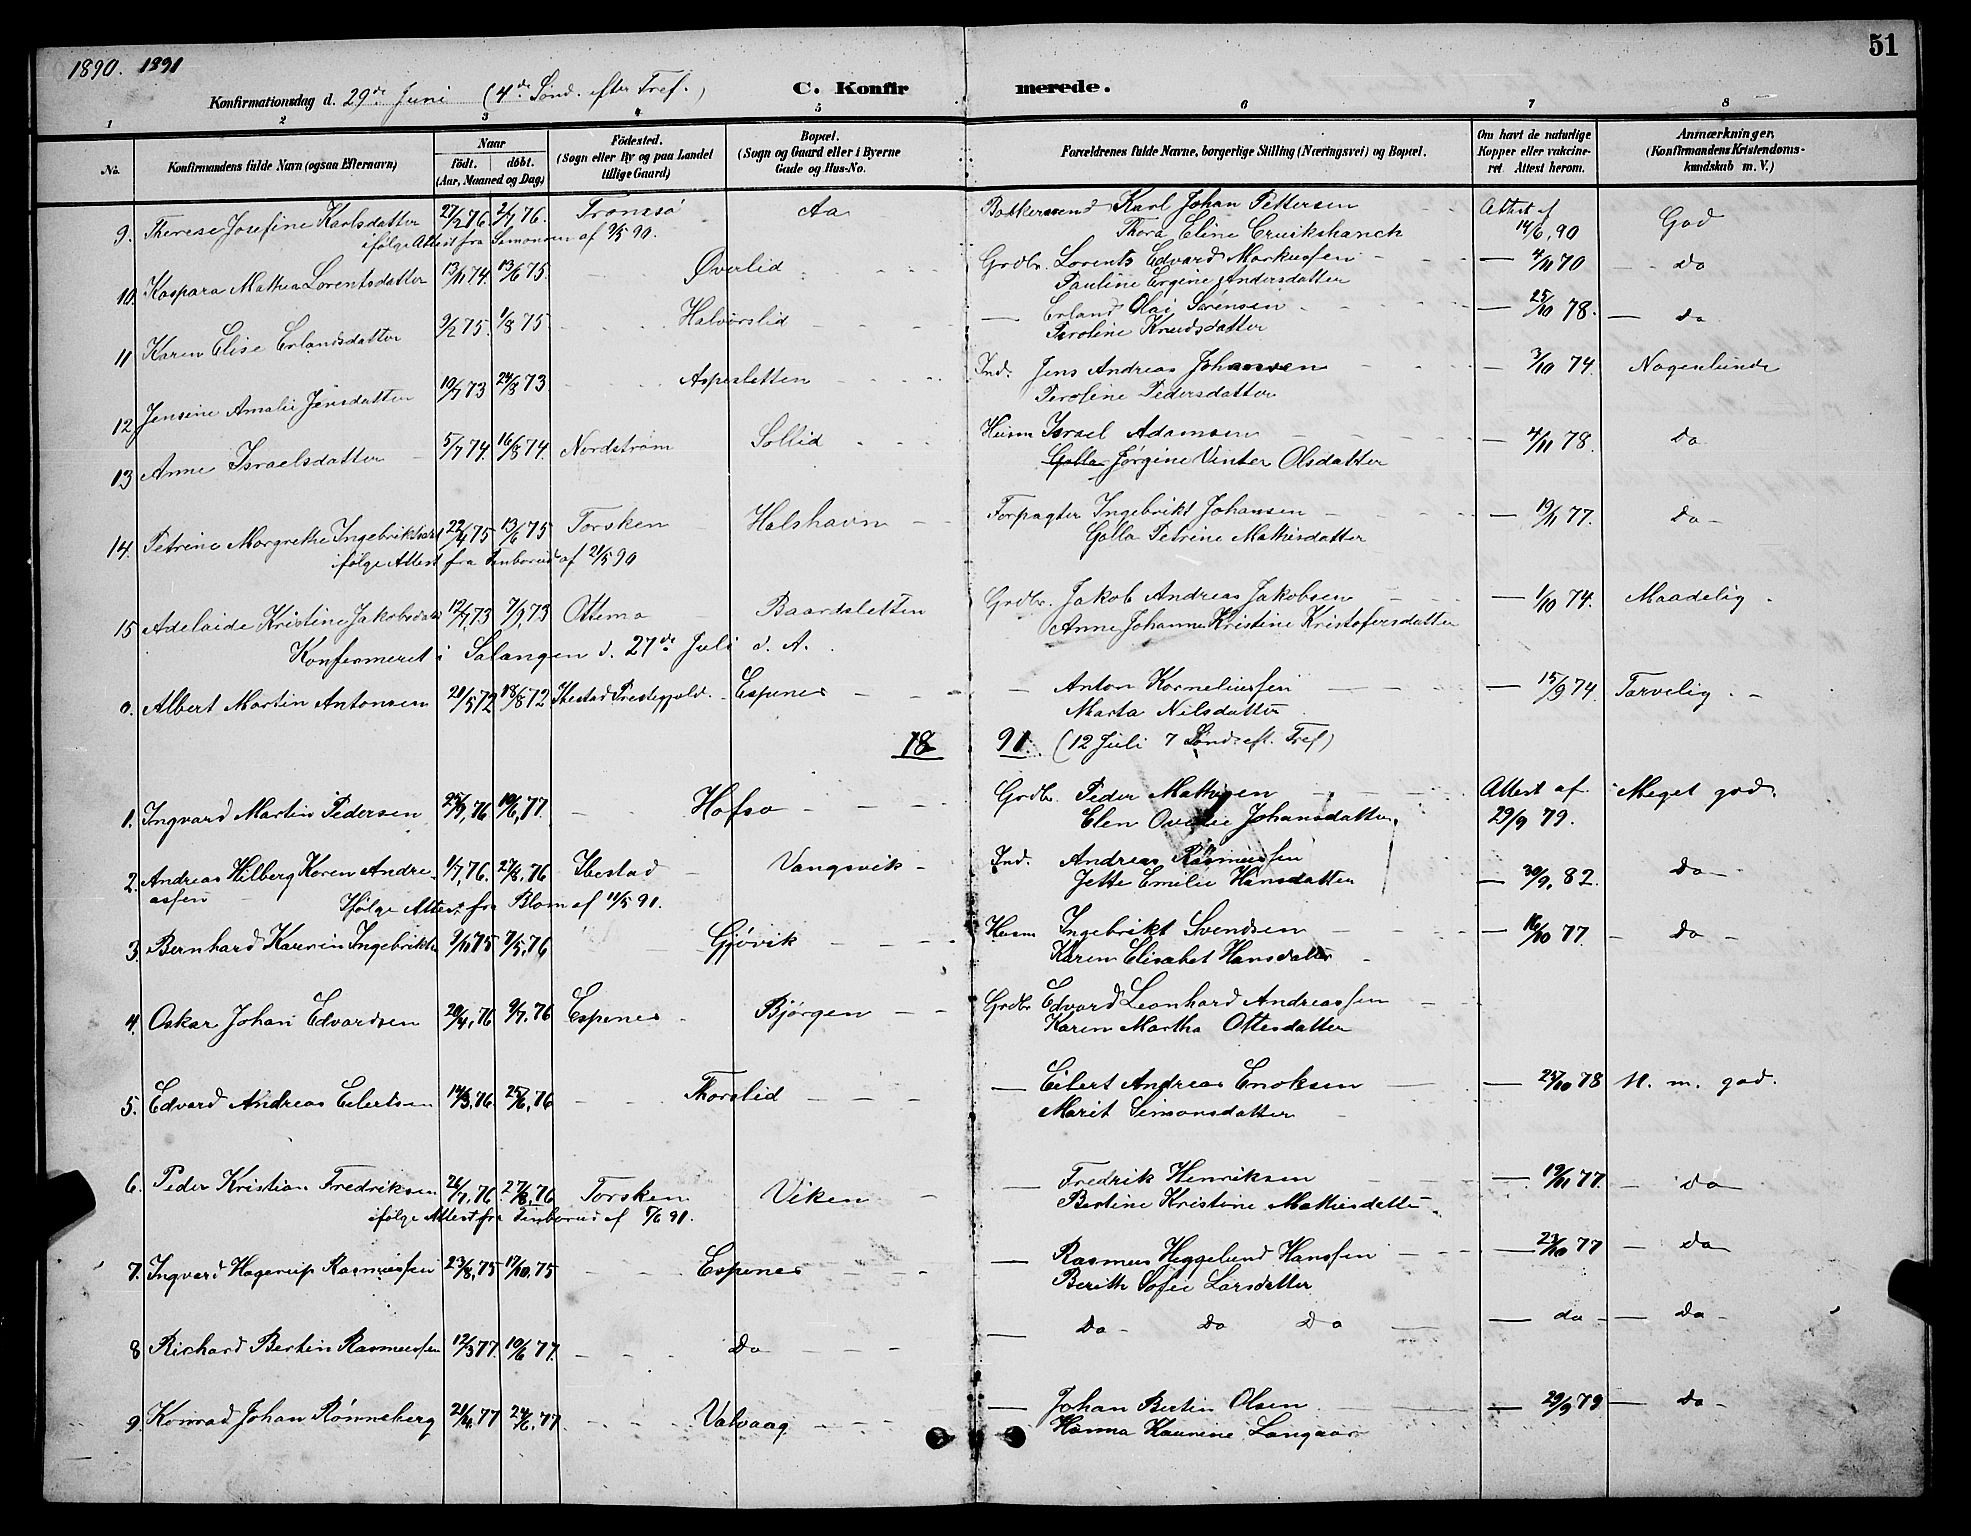 51
1890. 1891
Konfirmationsdag d. 29de Juni (4de Sønd. efter Tref.) C. Konfirmerede.
1 2 3 4 5 6 7 8
No. Konfirmandens fulde Navn (ogsaa Efternavn) Naar født. døbt. (Aar, Maaned og Dag) Fødested. (Sogn eller By og paa Landet tillige Gaard) Bopæl. (Sogn og Gaard eller i Byerne Gade og Hus-No. Forældrenes fulde Navne, borgerlige Stilling (Næringsvei) og Bopæl. Om havt de naturlige Kopper eller vakcineret Attest herom. Anmærkninger. (Konfirmandens Kristendomskundskab m. V.)
9. Therese Josefine Karlsdatter 27/2 76 2/7 76. Tromsø Aa Karl Johan Pettersen Attest af 14/6, 90 God
ifølge Attest fra Simonsen af 9/5 90. Thora Eline Cruikshanch
10. Kaspara Mathea Lorentsdatter 13/11 74. 13/6 75. - - Øverlid Grdbr. Lorents Edvard Markussen - 4/11 70 - do
Pauline Ergine Andersdatter
11 Karen Elise Erlandsdatter 9/2 75. 1/8 75 - - Halvorslid - Erland Olai Sørensen - 25/10 78. - do
Peroline Knudsdatter
12 Jensine Amalie Jensdatter 10/7 73 24/8 73. - - Aspesletten Ind. Jens Andreas Johansen - 3/10 74. Nogenlunde
Peroline Pedersdatter
13 Anne Israelsdatter 5/7 74. 16/8 74. Nordstrøm Sollid Husm Israel Adamsen - 4/11 78. do
Golla Jørgine Vinter Olsdatter
14. Petrine Margrethe Ingebriktsdat 22/4 75 13/6 75 Torsken Halshavn Forpagter Ingebrikt Johansen - 19/11 77. do -
ifølge Attest fra af 21/5 90 Golla Petrine Mathisdatter
15 Adelaide Kristine Jakobsdat 12/7 73 7/9 73 Ottemo Baardsletten Grdbr. Jakob Andreas Jakobsen - 1/10 74. Maadelig.
Anne Johanne Kristine Kristofersdatter
Konfermeret i Salangen d. 27de Juli d. A.
0. Albert Martin Antonsen 21/5 72 18/8 72 Ibestad Prestegjeld. Espenes - Anton Korneliussen - 15/9 74. Tarvelig. -
Marta Nilsdatter
1891. (12 Juli 7 Sønd. eft. Tref)
1. Ingvard Martin Pedersen 25/7, 76 10/6, 77. - Hofsø Grdbr. Peder Mathisen Attest af 29/9 79. Meget god.
Elen Ovedie Johansdatter
2. Andreas Hilberg Koren Andreassen 1/7, 76. 27/8, 76 Ibestad Vangsvik - Ind. Andreas Rasmussen - 30/9, 82. do
Ifølge Attest fra Blom af 11/5 91. Jette Emilie Hansdatter
3. Bernhard Kaurin Ingebrikts 9/11 75 7/5, 76 - Gjøvik Husm Ingebrikt Svendsen - 16/10 77. - do -
Karen Elisabet Hansdatter
4. Oskar Johan Edvardsen 20/4, 76 9/7. 76 Espenes Bjørgen Grdbr Edvard Leonhard Andreassen
Karen Martha Ottesdatter
5. Edvard Andreas Eilertsen 14/3, 76. 25/6, 76 - - Thorslid - Eilert Andreas Enoksen - 25/10 78 M. m. god.
Marit Simonsdatter
6. Peder Kristian Fredriksen 26/7, 76 27/8, 76 Torsken Viken - Fredrik Henriksen - 19/11 77. - do
ifølge Attest fra af 5/6 91. Bertine Kristine Mathisdatter
7. Ingvard Hagerup Rasmussen 23/8, 75 17/10, 75 - - Espenes - Rasmus Heggelund Hanssen - 23/10 77 - do
Berith Sofie Larsdatter
8 Richard Bertin Rasmussen 12/3 77. 10/6 77. - - Do - Do - Do Do - do - - do -
9. Konrad Johan Rønneberg 21/4, 77 24/6, 77. - - Valvaag - Johan Bertin Olsen - 29/9 79 - do -
Hanna Kaurine Langaar